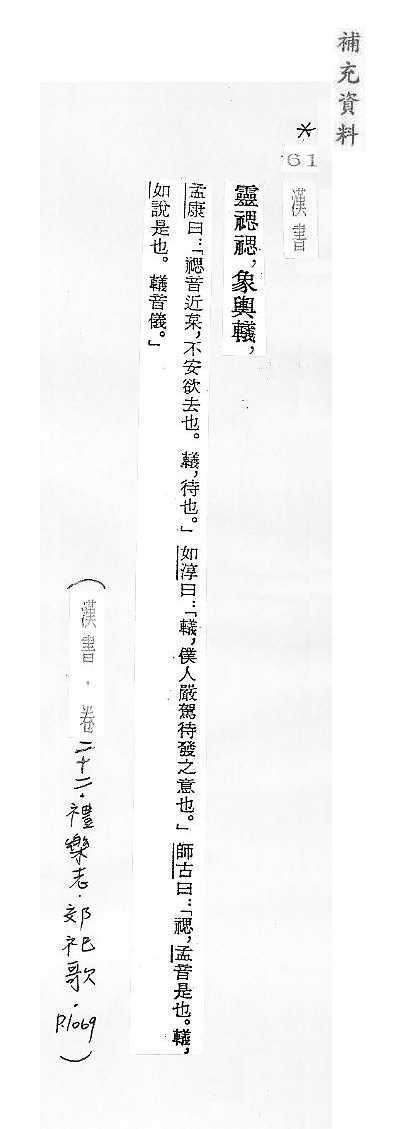 補充資料
*
61
漢書
靈禗禗，象輿轙，
孟康曰：「禗音近枲，不安欲去也。轙，待也。」如淳曰：「轙，僕人嚴駕待發之意也。」師古曰：「禗，孟音是也。轙，
如說是也。轙音儀。」
（漢書．卷二十二．禮樂志．郊祀歌．P.1069）